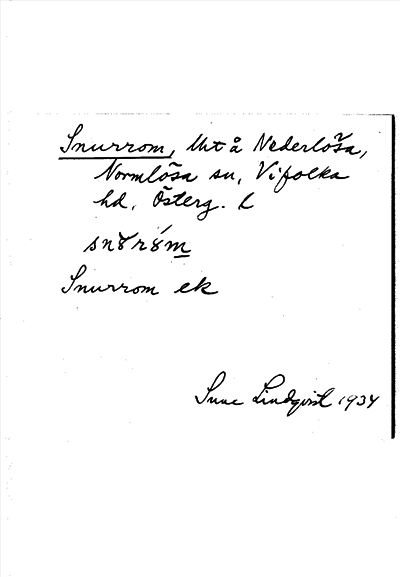 Snurrom, Uht å Nederlösa,
Normlösa sn, Vifolka
hd, Österg. L
sn8r8́m
Snurrom ek
Sune Lindqvist 1934